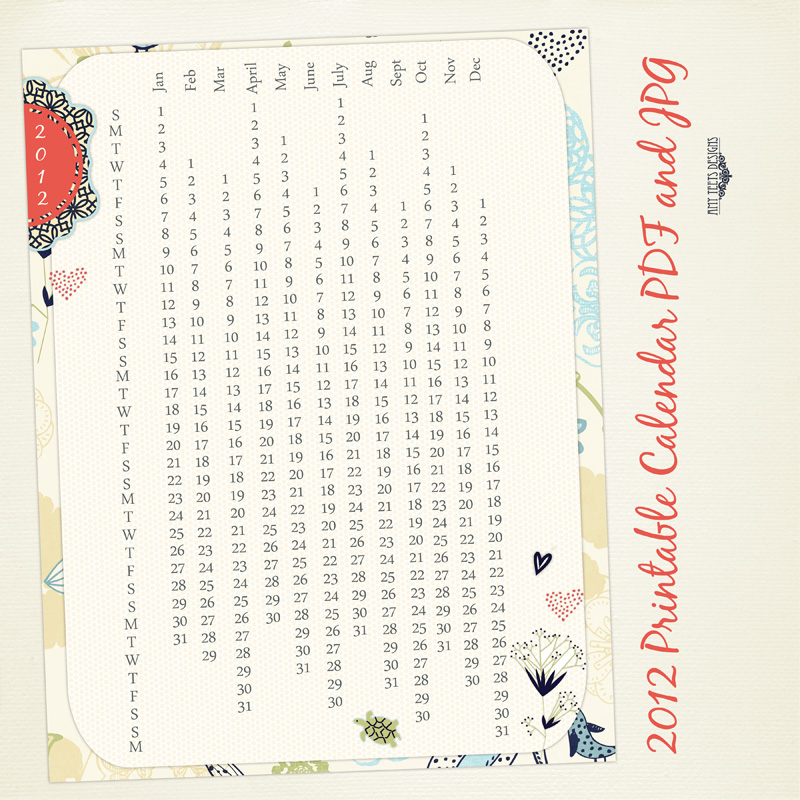 2012
Jan Feb Mar April May June July Aug Sept Oct Nov Dec
S 1 1 1
M 2 2 2 1
T 3 3 1 3 2
W 4 1 4 2 4 1 3
T 5 2 1 5 3 5 2 4 1
F 6 3 2 6 4 1 6 3 5 2
S 7 4 3 7 5 2 7 4 1 6 3 1
S 8 5 4 8 6 3 8 5 2 7 4 2
M 9 6 5 9 7 4 9 6 3 8 5 3
T 10 7 6 10 8 5 10 7 4 9 6 4
W 11 8 7 11 9 6 11 8 5 10 7 5
T 12 9 8 12 10 7 12 9 6 11 8 6
F 13 10 9 13 11 8 13 10 7 12 9 7
S 14 11 10 14 12 9 14 11 8 13 10 8
S 15 12 11 15 13 10 15 12 9 14 11 9
M 16 13 12 16 14 11 16 13 10 15 12 10
T 17 14 13 17 15 12 17 14 11 16 13 11
W 18 15 14 18 16 13 18 15 12 17 14 12
T 19 16 15 19 17 14 19 16 13 18 15 13
F 20 17 16 20 18 15 20 17 14 19 16 14
S 21 18 17 21 19 16 21 18 15 20 17 15
S 22 19 18 22 20 17 22 19 16 21 18 16
M 23 20 19 23 21 18 23 20 17 22 19 17
T 24 21 20 24 22 19 24 21 18 23 20 18
W 25 22 21 25 23 20 25 22 19 24 21 19
T 26 23 22 26 24 21 26 23 20 25 22 20
F 27 24 23 27 25 22 27 24 21 26 23 21
S 28 25 24 28 26 23 28 25 22 27 24 22
S 29 26 25 29 27 24 29 26 23 28 25 23
M 30 27 26 30 28 25 30 27 24 29 26 24
T 31 28 27 29 26 31 28 25 30 27 25
W 29 28 30 27 29 26 31 28 26
T 29 31 28 30 27 29 27
F 30 29 31 28 30 28
S 31 30 29 29
S 30 30
M 31
2012 Printable Calendar PDF and JPG
AMY TEETS DESIGNS